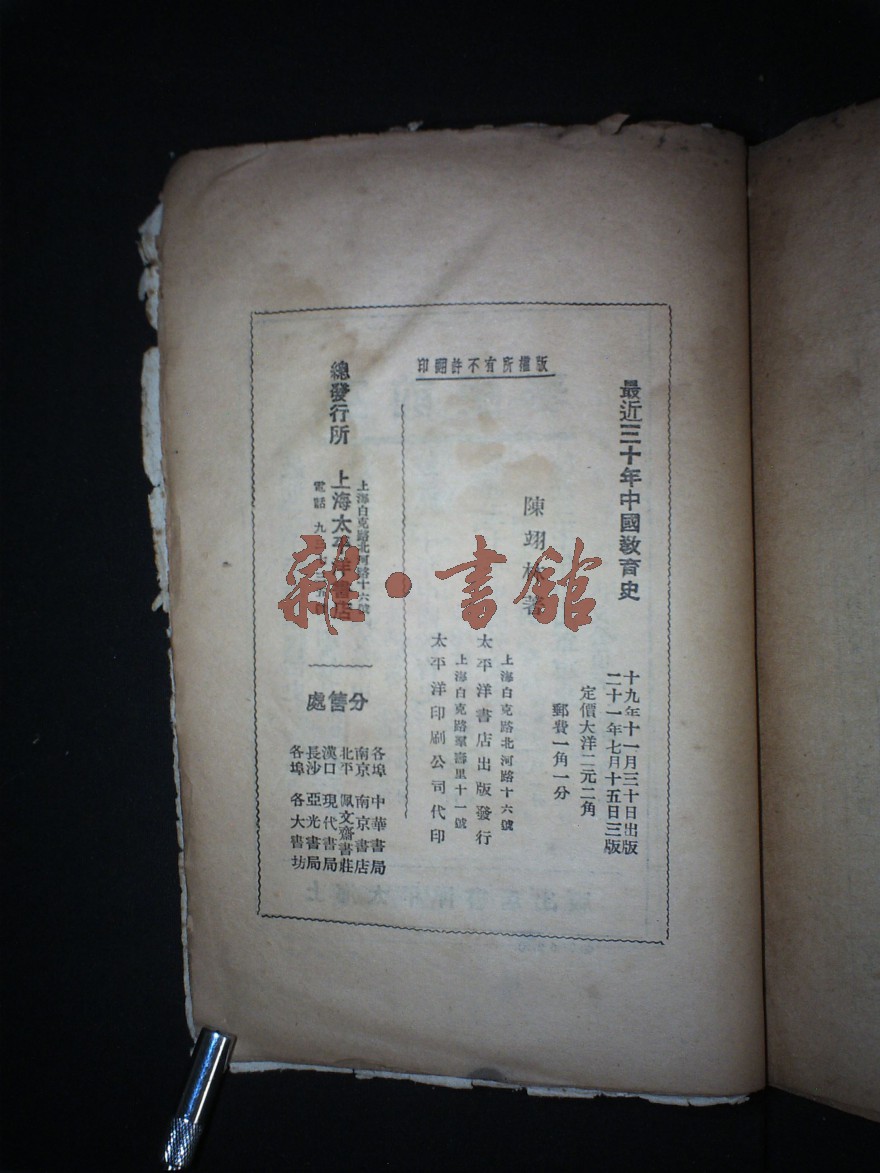 最近三十年中國教育史
十九年十一月三十日出版
二十一年七月十五日三版
定價大洋二元二角
郵費一角一分
陳翊林著
上海白克路北河路十六號
太平洋書店出版發行
上海白克路羣壽里十一號
太平洋印刷公司代印
版權所有不許翻印
總發行所
上海白克路北河路十六號
上海太平洋書店
電話 九
分售處
各埠 中華書局
南京 南京書店
北平 佩文齋書莊
漢口 現代書局
長沙 亞光書局
各埠 各大書坊
雜·書館